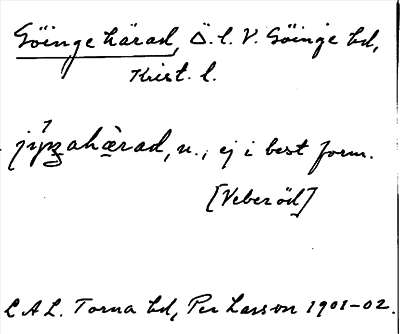 Göinge härad, Ö. l. V. Göinge hd,
Krist. l.
jípʒahæ̀rad, n., ej i best form.
[Veberöd]
LAL. Torna hd, Per Larsson 1901-02.